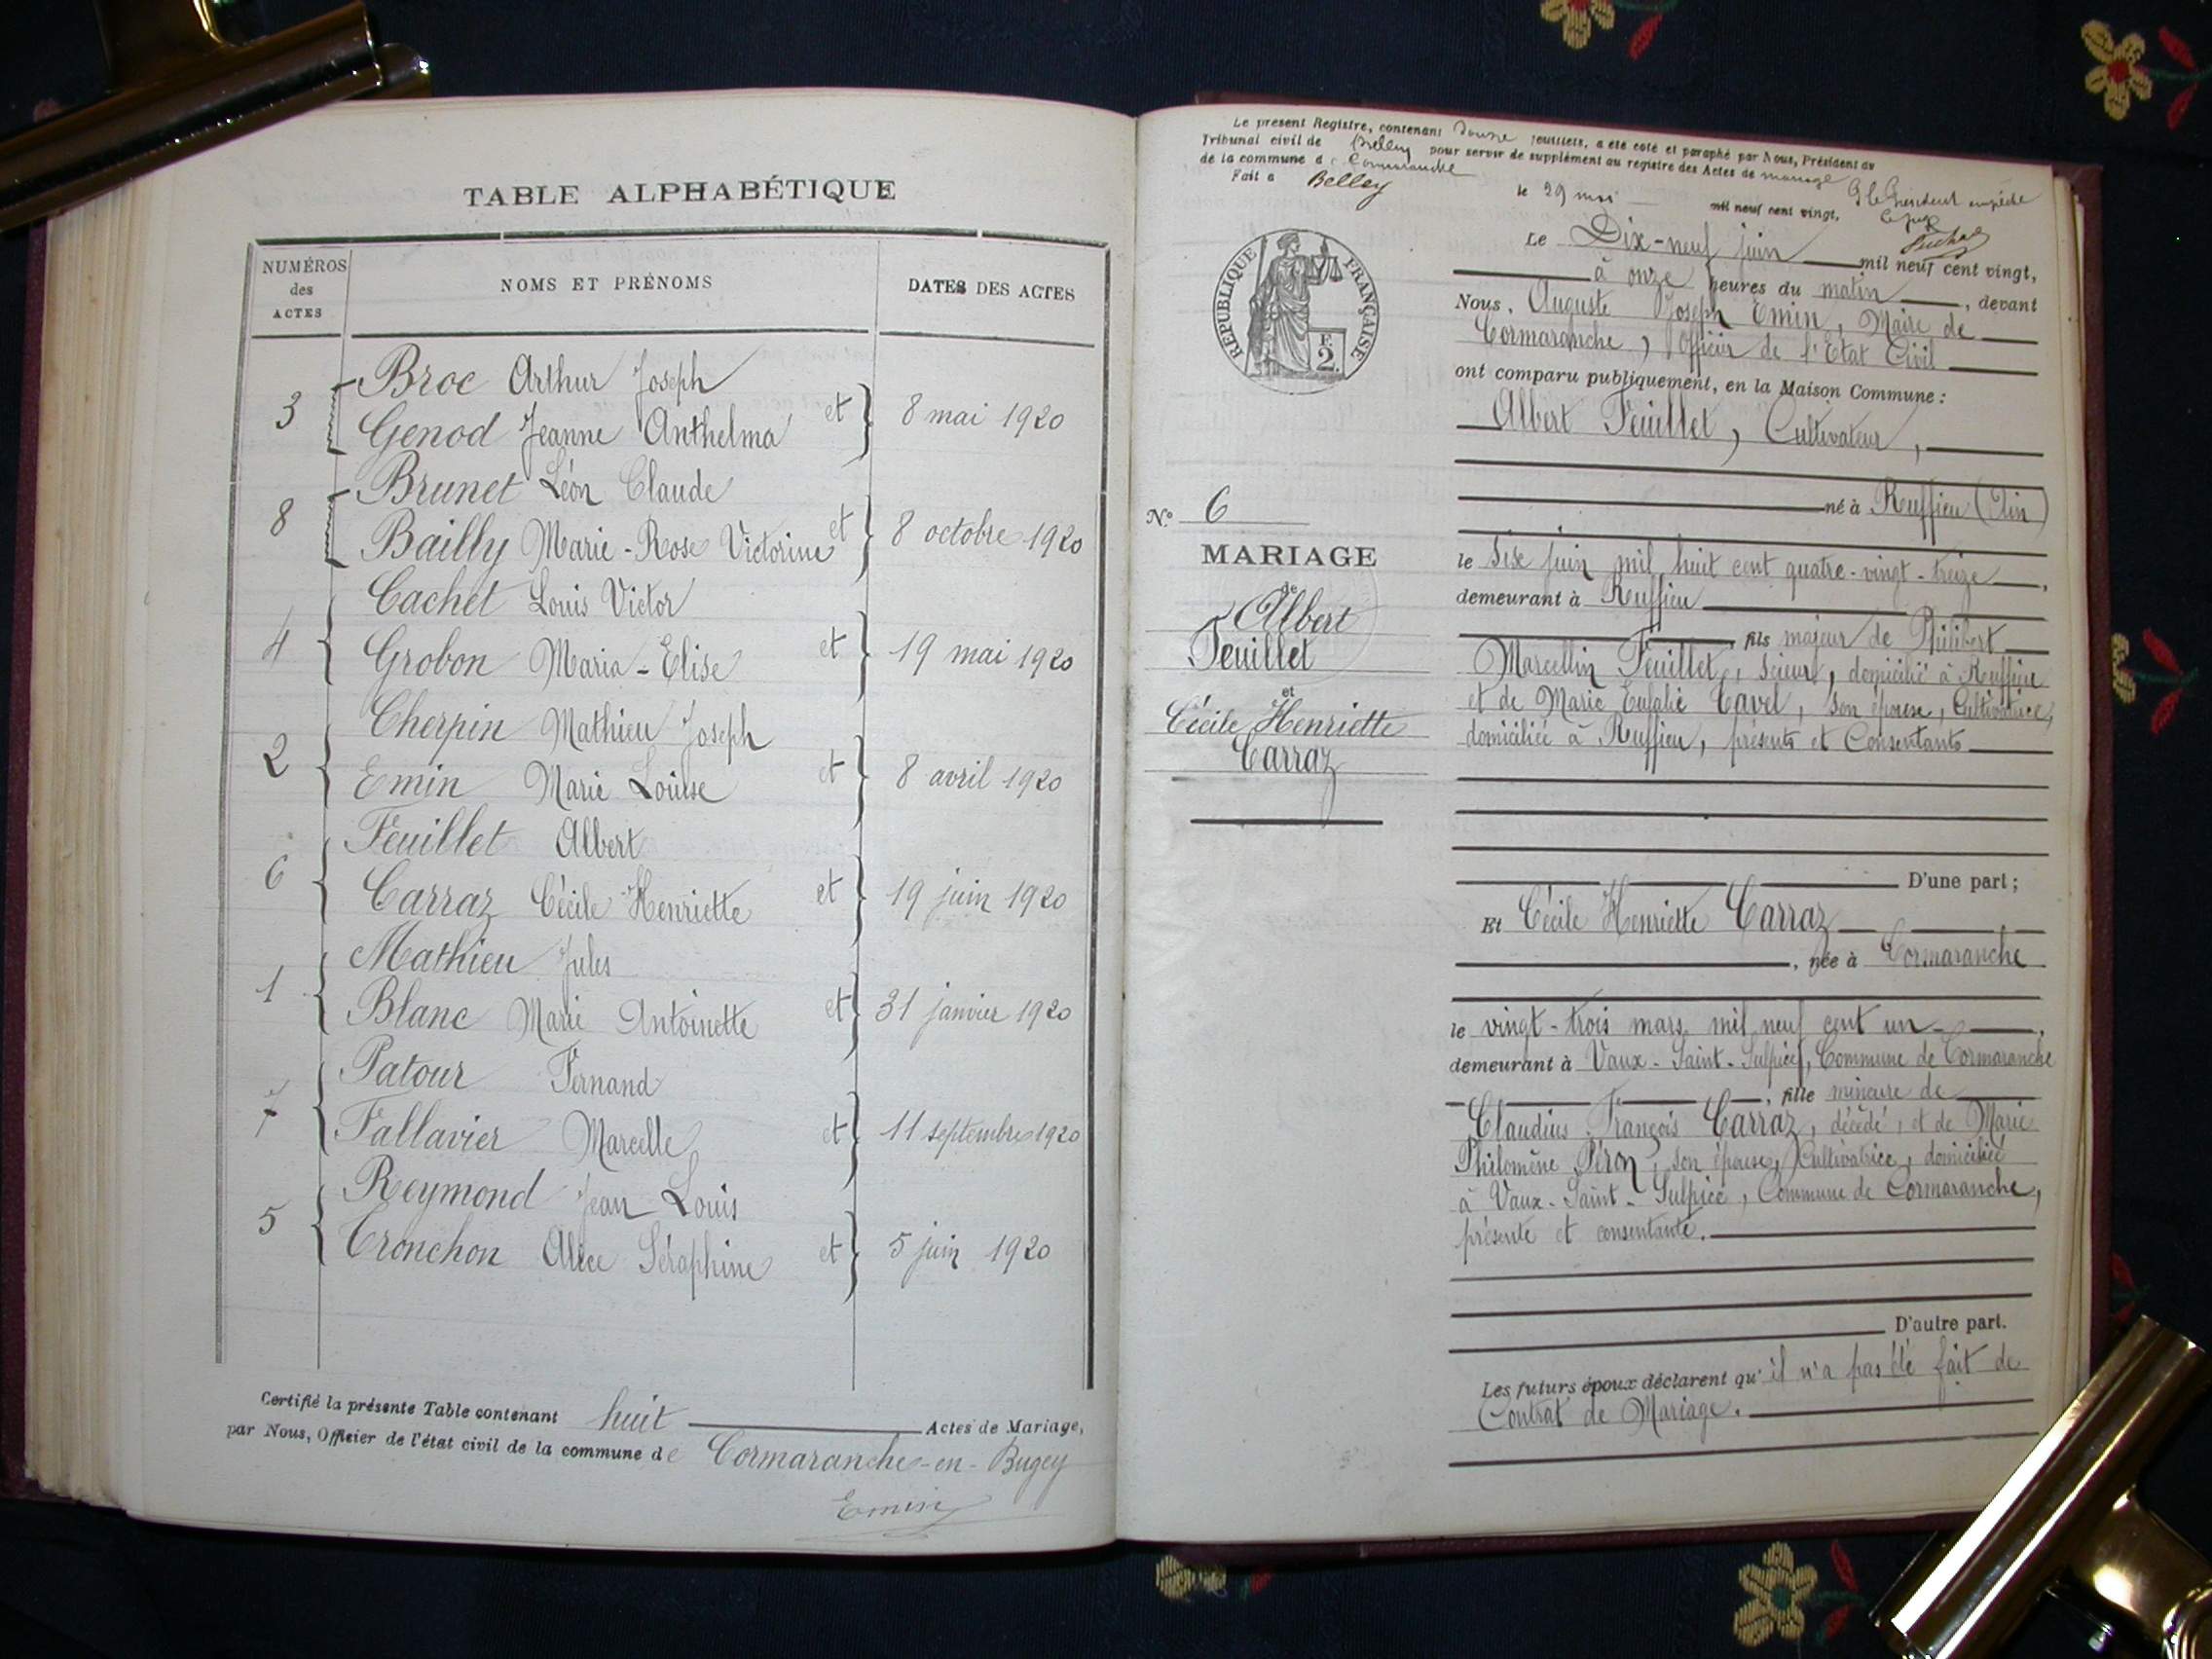 TABLE ALPHABÉTIQUE
NUMÉROS
des
ACTES
NOMS ET PRÉNOMS
DATES DES ACTES
Broc Arthur Joseph
3 Genod Jeanne Anthelma et 8 mai 1920
Brunet Léon Claude
8 Bailly Marie-Rose Victorine et 8 octobre 1920
Cachet Louis Victor
4 Grobon Maria-Elise et 19 mai 1920
Cherpin Mathieu Joseph
2 Emin Marie Louise et 8 avril 1920
Feuillet Albert
6 Carraz Cécile Henriette et 19 juin 1920
Mathieu Jules
1 Blanc Marie Antoinette et 31 janvier 1920
Patour Fernand
7 Fallavier Marcelle et 11 septembre 1920
Reymond Jean Louis
5 Tronchon Alice Séraphine et 5 juin 1920
Certifié la présente Table contenant huit Actes de Mariage,
par Nous, Officier de l'état civil de la commune de Cormaranche-en-Bugey
Emin
Le présent Registre, contenant douze feuillets, a été coté et paraphé par Nous, Président du
Tribunal civil de Belley pour servir de supplément au registre des Actes de mariage
de la commune d Cormaranche
Fait à Belley le 29 mai mil neuf cent vingt,
P le Président empêché
Le juge
RÉPUBLIQUE FRANÇAISE
F.
2.
N° 6
MARIAGE
de
Albert
Feuillet
et
Cécile Henriette
Carraz
Le Dix-neuf juin mil neuf cent vingt,
à onze heures du matin, devant
Nous, Auguste Joseph Emin, Maire de
Cormaranche, Officier de l'Etat Civil
ont comparu publiquement, en la Maison Commune :
Albert Feuillet, Cultivateur,
né à Ruffieu (Ain)
le Six juin mil huit cent quatre-vingt-treize,
demeurant à Ruffieu
fils majeur de Philibert
Marcellin Feuillet, scieur, domicilié à Ruffieu
et de Marie Eulalie Tavel, son épouse, Cultivatrice,
domiciliée à Ruffieu, présents et Consentants
D'une part ;
Et Cécile Henriette Carraz
, née à Cormaranche
le vingt-trois mars mil neuf cent un,
demeurant à Vaux-Saint-Sulpice, Commune de Cormaranche
, fille mineure de
Claudius François Carraz, décédé, et de Marie
Philomène Péron, son épouse, Cultivatrice, domiciliée
à Vaux-Saint-Sulpice, Commune de Cormaranche,
présente et consentante.
D'autre part.
Les futurs époux déclarent qu'il n'a pas été fait de
Contrat de Mariage.